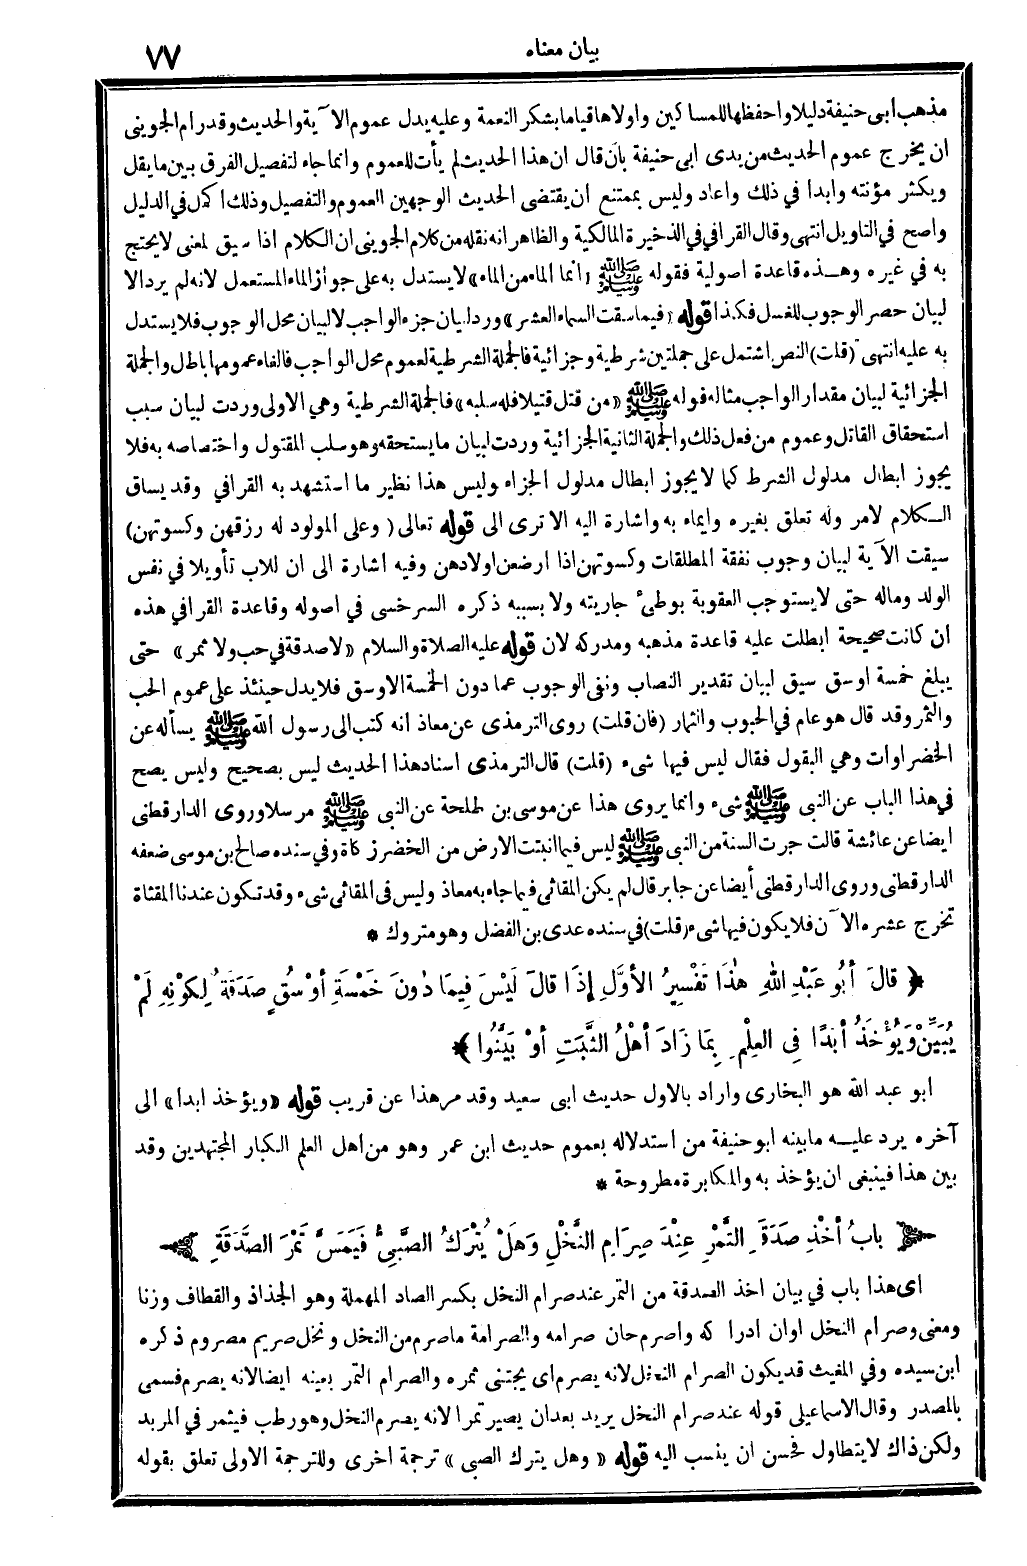 بيان معناه
٧٧
مذهب ابى حنيفة دليلا واحفظها للمساكين واولاها قياما بشكر النعمة وعليه يدل عموم الآية والحديث وقد رام الجوينى
ان يخرج عموم الحديث من يدى ابى حنيفة بان قال ان هذا الحديث لم يأت للعموم وانما جاء لتفصيل الفرق بين ما يقل
ويكثر مؤنته وابدا في ذلك واعاد وليس بممتنع ان يقتضى الحديث الوجهين العموم والتفصيل وذلك اكمل في الدليل
واصح في التاويل انتهى وقال القرافي في الذخيرة المالكية والظاهر انه نقله من كلام الجوينى ان الكلام اذا سيق لمعنى لا يحتج
به في غيره وهذه قاعدة اصولية فقوله ﷺ «انما الماء من الماء» لا يستدل به على جواز الماء المستعمل لانه لم يرد الا
لبيان حصر الوجوب للغسل فكذا قوله «فيما سقت السماء العشر» ورد لبيان جزء الواجب لا لبيان محل الوجوب فلا يستدل
به عليه انتهى (قلت) النص اشتمل على جملتين شرطية وجزائية فالجملة الشرطية لعموم محل الواجب فالغاء عمومها باطل والجملة
الجزائية لبيان مقدار الواجب مثاله قوله ﷺ «من قتل قتيلا فله سلبه» فالجملة الشرطية وهي الاولى وردت لبيان سبب
استحقاق القاتل وعموم من فعل ذلك والجملة الثانية الجزائية وردت لبيان ما يستحقه وهو سلب المقتول واختصاصه به فلا
يجوز ابطال مدلول الشرط كما لا يجوز ابطال مدلول الجزاء وليس هذا نظير ما استشهد به القرافي وقد يساق
الكلام لامر وله تعلق بغيره وايماء به واشارة اليه الا ترى الى قوله تعالى (وعلى المولود له رزقهن وكسوتهن)
سيقت الآية لبيان وجوب نفقة المطلقات وكسوتهن اذا ارضعن اولادهن وفيه اشارة الى ان للاب تأويلا في نفس
الولد وماله حتى لا يستوجب العقوبة بوطىء جاريته ولا بسببه ذكره السرخسى في اصوله وقاعدة القرافي هذه
ان كانت صحيحة ابطلت عليه قاعدة مذهبه ومدركه لان قوله عليه الصلاة والسلام «لا صدقة في حب ولا ثمر» حتى
يبلغ خمسة اوسق سيق لبيان تقدير النصاب ونفى الوجوب عما دون الخمسة الاوسق فلا يدل حينئذ على عموم الحب
والثمر وقد قال هو عام في الحبوب والثمار (فان قلت) روى الترمذى عن معاذ انه كتب الى رسول الله ﷺ يسأله عن
الخضراوات وهي البقول فقال ليس فيها شىء (قلت) قال الترمذى اسناد هذا الحديث ليس بصحيح وليس يصح
في هذا الباب عن النبى ﷺ شىء وانما يروى هذا عن موسى بن طلحة عن النبى ﷺ مرسلا وروى الدارقطنى
ايضا عن عائشة قالت جرت السنة من النبى ﷺ ليس فيما انبتت الارض من الخضر زكاة وفي سنده صالح بن موسى ضعفه
الدارقطنى وروى الدارقطنى أيضا عن جابر قال لم يكن المقاثى فيما جاء به معاذ وليس فى المقاثى شىء وقد تكون عندنا المقثاة
تخرج عشره الآن فلا يكون فيها شىء (قلت) في سنده عدى بن الفضل وهو متروك *
﴿ قالَ أبُو عَبْدِ اللهِ هٰذَا تَفْسِيرُ الأوَّلِ إذَا قالَ لَيْسَ فِيمَا دُونَ خَمْسَةِ أوْسُقٍ صَدَقَةٌ لِكَوْنِهِ لَمْ
يُبَيِّنْ وَيُؤْخَذُ أبَدًا فِى العِلْمِ بِمَا زَادَ أهْلُ الثَّبَتِ أوْ بَيَّنُوا ﴾
ابو عبد الله هو البخارى واراد بالاول حديث ابى سعيد وقد مر هذا عن قريب قوله «ويؤخذ ابدا» الى
آخره يرد عليه ما بينه ابو حنيفة من استدلاله بعموم حديث ابن عمر وهو من اهل العلم الكبار المجتهدين وقد
بين هذا فينبغى ان يؤخذ به والمكابرة مطروحة *
بابُ أخْذِ صَدَقَةِ التَّمْرِ عِنْدَ صِرَامِ النَّخْلِ وَهَلْ يُتْرَكُ الصَّبِىُّ فَيَمَسَّ تَمْرَ الصَّدَقَةِ
اى هذا باب في بيان اخذ الصدقة من التمر عند صرام النخل بكسر الصاد المهملة وهو الجذاذ والقطاف وزنا
ومعنى وصرام النخل اوان ادراكه واصرم حان صرامه والصرامة ما صرم من النخل ونخل صريم مصروم ذكره
ابن سيده وفي المغيث قد يكون الصرام النخل لانه يصرم اى يجتنى ثمره والصرام التمر بعينه ايضا لانه يصرم فسمى
بالمصدر وقال الاسماعيلى قوله عند صرام النخل يريد بعد ان يصير تمرا لانه يصرم النخل وهو رطب فيتمر في المربد
ولكن ذاك لا يتطاول فحسن ان ينسب اليه قوله «وهل يترك الصبى» ترجمة اخرى وللترجمة الاولى تعلق بقوله